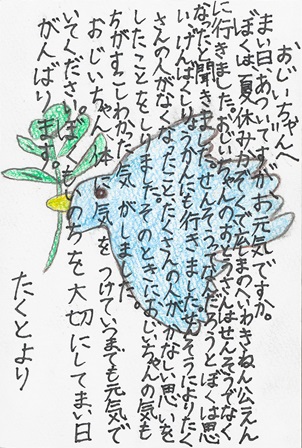 おじいちゃんへ
まい日あついですがお元気ですか。
ぼくは夏休みかぞくでへいわきねん公えん
に行きました。おじいちゃんのおとうさんはせんそうでなく
なったと聞きました。せんそうってなんだろうとぼくは思
いげんばくしりょうかんにも行きました。せんそうによりたく
さんの人がなくなったことたくさんの人がかなしい思いを
したことをしりました。そのときにおじいちゃんの気も
ちがすこしわかった気がしました。
おじいちゃん、体に気をつけていつまでも元気で
いてください。ぼくもいのちを大切にしてまい日
がんばります。
たくとより